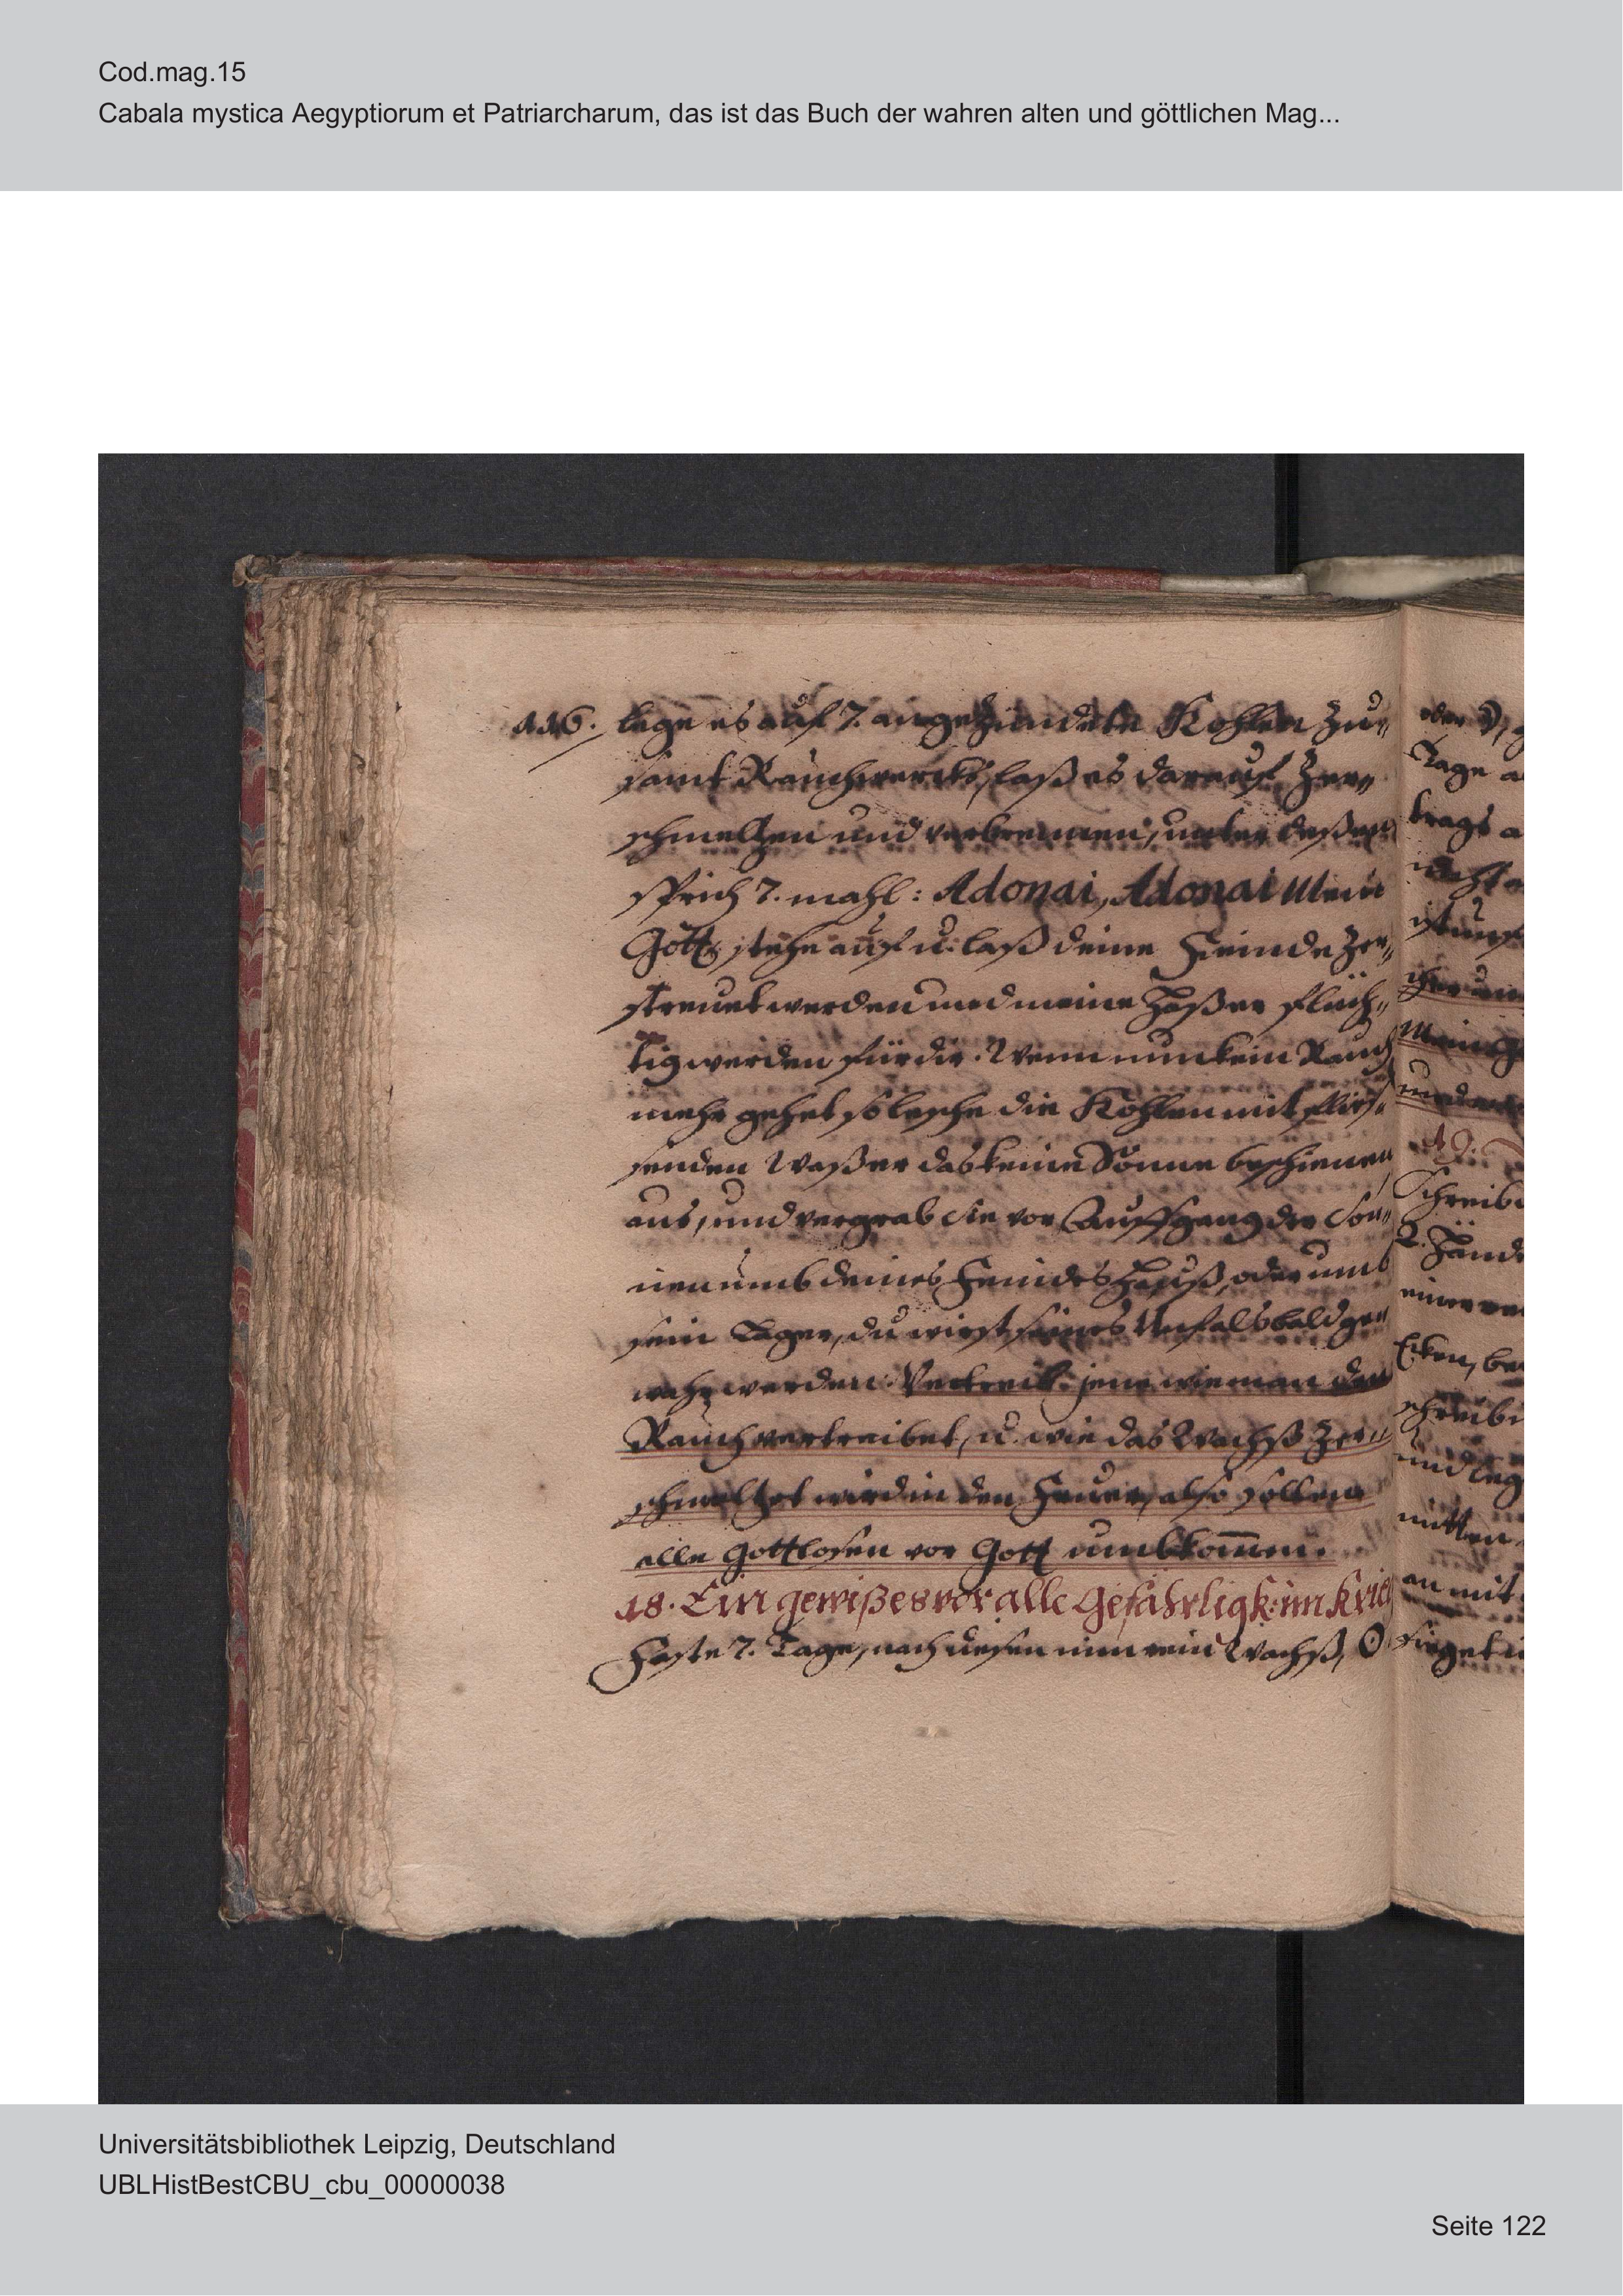 Cod.mag.15
Cabala mystica Aegyptiorum et Patriarcharum, das ist das Buch der wahren alten und göttlichen Mag...
116. lege es auf 7. angezündete Kohlen zu„
samt Rauchwercks, laß es darauf zer„
schmeltzen und verbrennen, unter deßen
sprich 7. mahl: Adonai, Adonai Mein
Gott, stehe auf u. laß deine Feinde zer„
streuet werden und meine Haßer flüch„
tig werden für dir. Wenn nun kein Rauch
mehr gehet so lesche die Kohlen mit flies„
senden Waßer das keine Sonne beschienen
aus, und vergrab sie vor Auffgang der Son„
nen umb deines Feindes Hauß, oder umb
sein Lager, du wirst seines Unfals bald ge„
wahr werden. Vertreib jene wie man den
Rauch vertreibet, u. wie das Wachß zer„
schmeltzet wird in den Feuer, also sollen
alle Gottlosen vor Gott umbkom̅en.
18. Ein gewißes vor alle Gefährligk: im Krie
Faste 7. Tage, nach diesen nim rein Wachß, O
oder
Tage
19.
Schreib
2. Händ
Ecken, be
schreib
und leg
mitten
an mit
Universitätsbibliothek Leipzig, Deutschland
UBLHistBestCBU_cbu_00000038
Seite 122